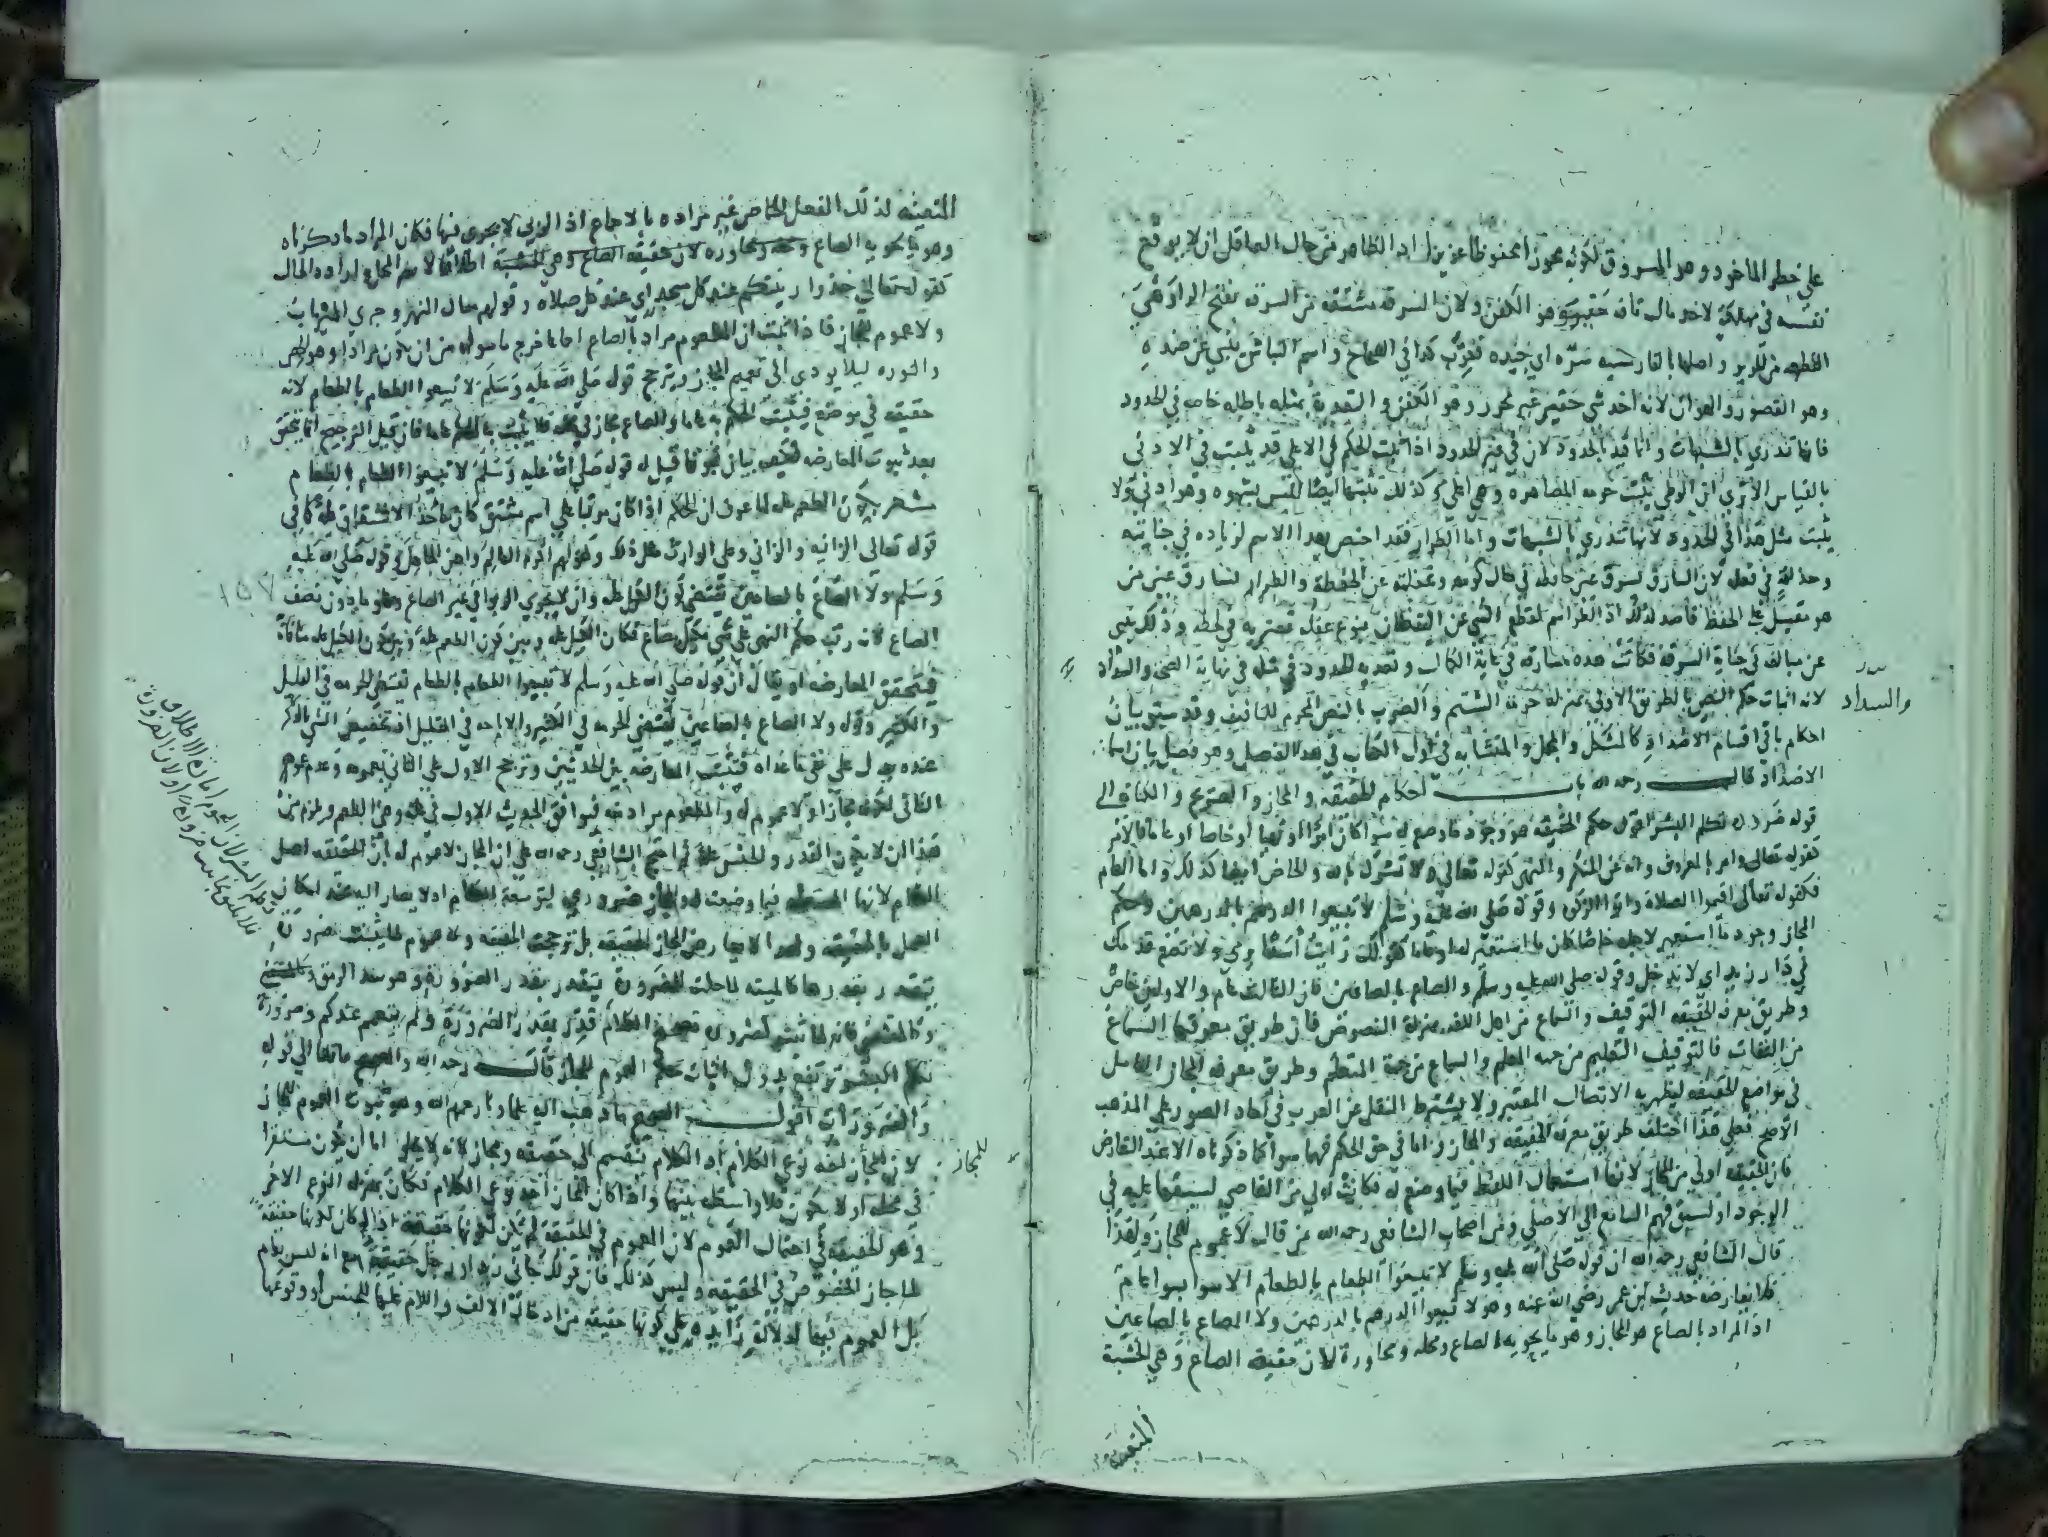 على خطر الماخود وهو المسروق لكونه محوزا محفوظا عزيزا اذ الظاهر من حال العاقل ان لا يوقع
نفسه في مهلكة لاخد مال تافه حقير وهو الكفن ولان السرقة مشتقه من السرقه بفتح الراء وهي
القطعه من الحرير واصلها بالفارسيه سره اي جيده فعرب كذا في الصحاح واسم النباش ينبي عن ضده
وهو القصور والهوان لانه اخد شي حقير غير محرز وهو الكفن والتعدية بمثله باطله خاصه في الحدود
فانها تندري بالشبهات وانما قيد بالحدود لان في غير الحدود اذا ثبت الحكم في الاعلى قد يثبت في الادنى
بالقياس الا ترى ان الوطي يثبت حرمه المصاهره وهي اعلى وكذلك يثبتها ايضا المس بشهوه وهو ادنى ولا
يثبت مثل هذا في الحدود لانها تندري بالشبهات واما الطرار فقد اختص بهذا الاسم لزياده في جنايته
وحذاقة في فعله لان السارق يسرق عين حافظه في حال نومه وغفلته عن الحفظه والطرار يسارق عين من
هو مقبل على الحفظ قاصد لذلك اذ الطر اسم لقطع الشي عن اليقظان بنوع غفلة تعتريه في لحظه وذلك ينبي
عن مبالغه في جناية السرقه فكانت هذه مسارقه في غاية الكمال وتعديه الحدود في مثله في نهاية الصحه والسداد
والسداد
لانه اثبات حكم النص بالطريق الاولى بمنزله حرمة الشتم والضرب بالنص المحرم للتافيف وقد سبق بيان
احكام باقي اقسام الاضداد كالمشكل والمجمل والمتشابه في اول الكتاب في هذا الفصل وهو فصل بيان اسما
الاضداد قال رحمه الله باب احكام الحقيقه والمجاز والصريح والكنايه الى
قوله ضرورة تكلم البشر اقول حكم الحقيقه هو وجود ما وضع له سوا كان امرا او نهيا او خاصا او عاما فالامر
كقوله تعالى وامر بالمعروف وانه عن المنكر والنهي كقوله تعالى ولا تشرك بالله والخاص ايضا كذلك واما العام
فكقوله تعالى اقيموا الصلاة واتوا الزكوة وقوله صلى الله عليه وسلم لا تبيعوا الدرهم بالدرهمين وحكم
المجاز وجود ما استعير لاجله خاصا كان ما استعير له او عاما كقولك رايت اسدا يرمي ولا تضع قدمك
في دار زيد اي لا تدخل وقوله صلى الله عليه وسلم والصاع بالصاعين فان الثالث عام والاولين خاص
وطريق معرفة الحقيقه التوقيف والسماع من اهل اللغه بمنزلة النصوص فان طريق معرفتها السماع
من الثقات فالتوقيف التعليم من جهه المعلم والسماع من جهة المتعلم وطريق معرفه المجاز التامل
في مواضع الحقيقه ليظهر به الاتصال المعتبر ولا يشترط النقل عن العرب في احاد الصور على المذهب
الاصح فعلى هذا اختلف طريق معرفه الحقيقه والمجاز واما في حق الحكم فهما سوا كما ذكرناه الا عند التعارض
فان الحقيقه اولى من المجاز لانها استعمال اللفظ فيما وضع له فكانت اولى من العاصي لسبقها عليه في
الوجود او لسبق فهم السامع الى الاصلي ومن اصحاب الشافعي رحمه الله من قال لا عموم للمجاز ولهذا
قال الشافعي رحمه الله ان قوله صلى الله عليه وسلم لا تبيعوا الطعام بالطعام الا سوا بسوا عام
فلا يعارضه حديث ابن عمر رضي الله عنه وهو لا تبيعوا الدرهم بالدرهمين ولا الصاع بالصاعين
اذ المراد بالصاع هو المجاز وهو ما يحويه الصاع ويحله ويجاوره لان حقيقه الصاع وهي الخشبة
المتعينة
المتعينه لذلك الفعل الخاص غير مراده بالاجماع اذ الربى لا يجري فيها فكان المراد ما ذكرناه
وهو ما يحويه الصاع ويحله ويجاوره لان حقيقه الصاع وهي الخشبة اطلاقا لاسم المحل لارادة الحال
كقوله تعالى خذوا زينتكم عند كل مسجد اي عند كل صلاه وقولهم سال النهر وجرى الميزاب
ولا عموم للمجاز فاذا ثبت ان المطعوم مراد بالصاع اجماعا خرج ما سواه من ان يكون مرادا وهو الجص
والنوره ليلا يودي الى تعميم المجاز ويترجح قوله صلى الله عليه وسلم لا تبيعوا الطعام بالطعام لانه
حقيقه في موضعه فيثبت الحكم به عاما والصاع مجاز في محله فلا يثبت به الحكم عاما فان قيل الترجيح انما يتحقق
بعد ثبوت المعارضه فكيف بيان نحوها قيل له قوله صلى الله عليه وسلم لا تبيعوا الطعام بالطعام
يشعر بكون الطعم عله لما عرف ان الحكم اذا كان مرتبا على اسم مشتق كان ماخذ الاشتقاق عله كما في
قوله تعالى الزانيه والزاني وعلى الوارث مثل ذلك وكقولهم اكرم العالم واهن الجاهل وقوله صلى الله عليه
١٥٧
وسلم ولا الصاع بالصاعين يقتضي كون الكيل عله وان لا يجري الربوا في غير الصاع وهو ما دون نصف
الصاع لانه رتب حكم النهي على شي مكيل بصاع فكان الكيل عله وبين كون الطعم عله وبين كون الكيل عله منافاة
فيتحقق المعارضه او يقال ان قوله صلى الله عليه وسلم لا تبيعوا الطعام بالطعام يقتضي الحرمه في القليل
والكثير وقوله ولا الصاع بالصاعين يقتضي الحرمه في الكثير والاباحه في القليل اذ تخصيص الشي بالذكر
عنده يدل على نفي ما عداه فيثبت المعارضه بين الحديثين وترجح الاول على الثاني بعمومه وعدم عموم
الثاني لكونه مجازا ولا عموم له والمطعوم مراد منه فيوافق الحديث الاول في عله وهي الطعم ويلزم من
هذا ان لا يكون القدر والجنس عله ثم احتج الشافعي رحمه الله على ان المجاز لا عموم له ان الحقيقه اصل
الكلام لانها المستعمله فيما وضعت له والمجاز ضروري لتوسعة الكلام اذ لا يصار اليه عند امكان
العمل بالحقيقه ولهذا لا يعارض المجاز الحقيقه بل ترجحت الحقيقه ولا عموم لما يثبت ضرورة
يتقدر بقدرها كالميته لما حلت للضرورة يتقدر بقدر الضرورة وهو سد الرمق
وكالمقتضى فانه لما ثبت لضرورة تصحيح الكلام قدر بقدر الضرورة ولم يتعمم عندكم وضرورة
تكلم البشر ترتفع بدون اثبات حكم العموم للمجاز قال رحمه الله والصحيح ما قلنا الى قوله
والضرورات اقول الصحيح ما ذهب اليه علماونا رحمهم الله وهو ثبوت العموم للمجاز
للمجاز
لان المجاز احد نوعي الكلام اذ الكلام ينقسم الى حقيقه ومجاز لانه لا يخلو اما ان يكون مستقرا
في محله او لا يكون فلا واسطه بينهما واذا كان المجاز احد نوعي الكلام فكان بمنزله النوع الاخر
وهو الحقيقه في احتمال العموم لان العموم في الحقيقه لم يكن لكونها حقيقة اذ لو كان لكونها حقيقة
لما جاز الخصوص في الحقيقه وليس كذلك فان قولك جاني زيد او رجل حقيقة مع انه ليس بعام
بل العموم فيها لدلالة زايدة على كونها حقيقة من ادخال الالف واللام عليها للجنس او وقوعها